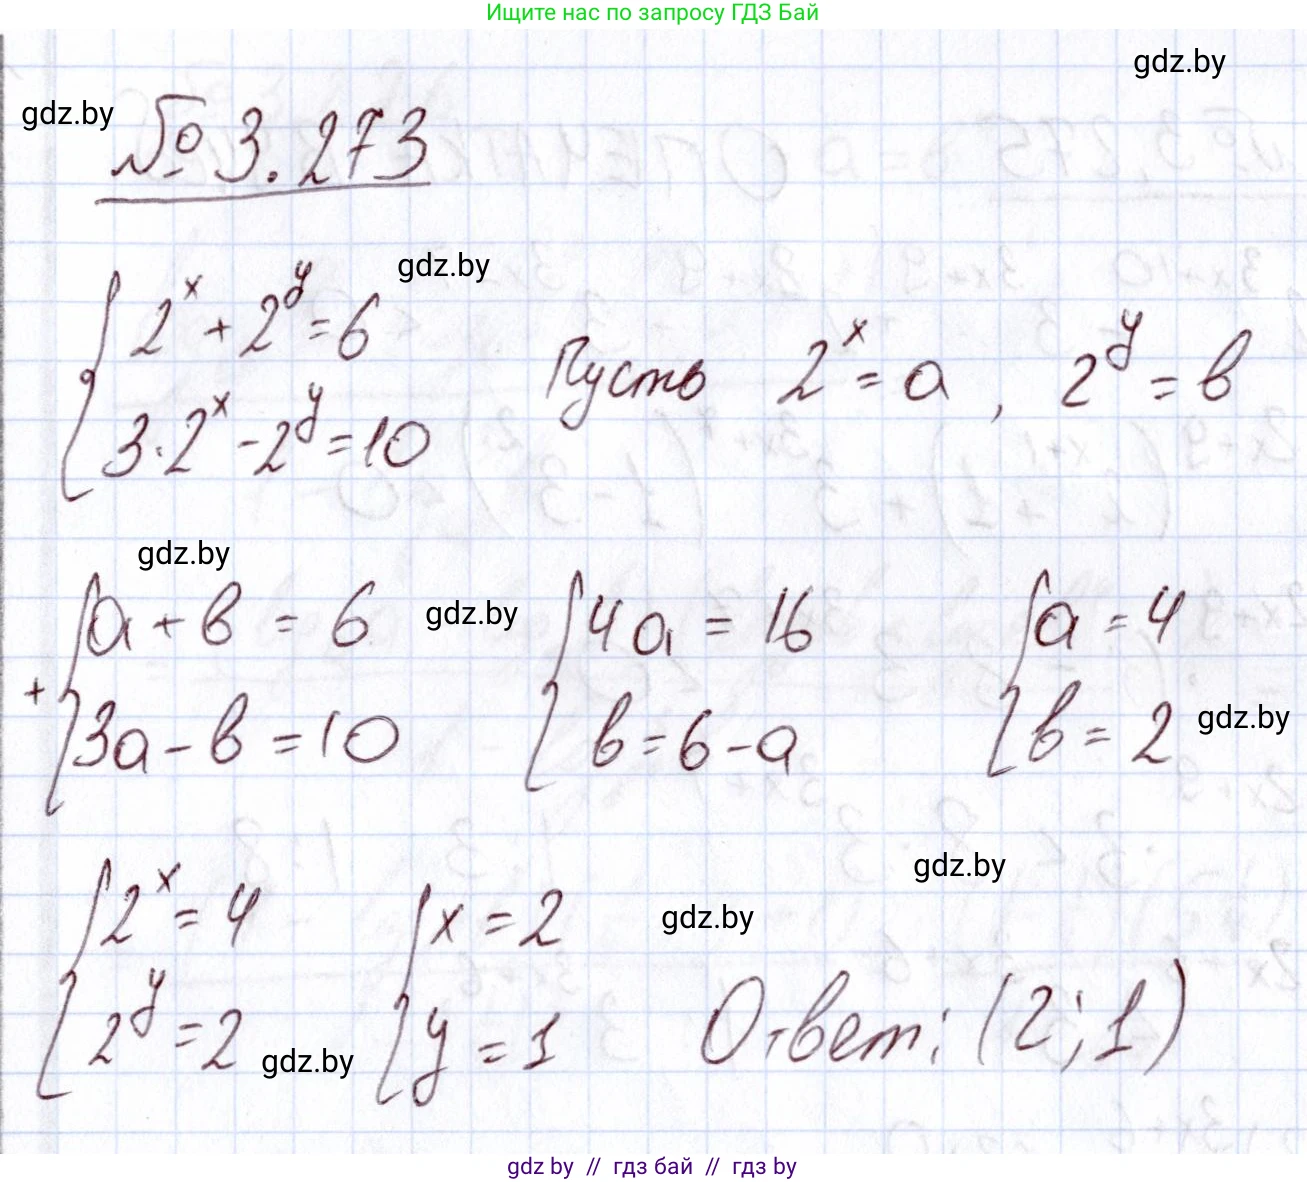 Ищите нас по запросу ГДЗ Бай
gdz.by
gdz.by
№ 3.273
gdz.by
{ 2^x + 2^y = 6
{ 3·2^x - 2^y = 10
Пусть 2^x = a, 2^y = в
gdz.by
gdz.by
+ { a + в = 6
{ 3a - в = 10
{ 4a = 16
{ в = 6 - a
{ a = 4
{ в = 2
gdz.by
gdz.by
gdz.by
{ 2^x = 4
{ 2^y = 2
{ x = 2
{ y = 1
Ответ: (2; 1)
gdz.by
gdz by // гдз бай // гдз by